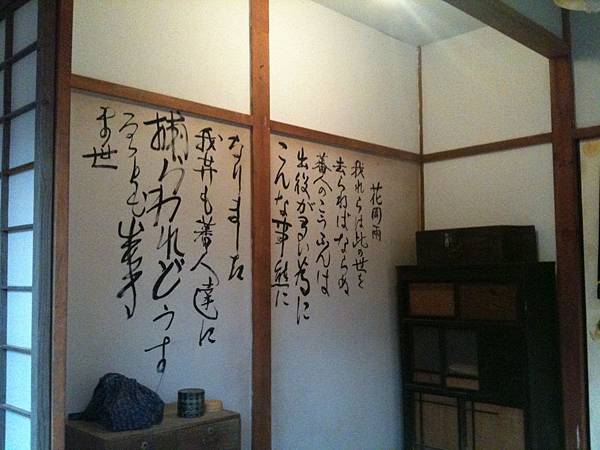 花岡雨
我れらは此の世を
去らねばならぬ
蕃人のこうふんは
出役が多い為に
こんな事態に
なりました
我等も蕃人達に
捕らわれどうす
ることも出来
ま世